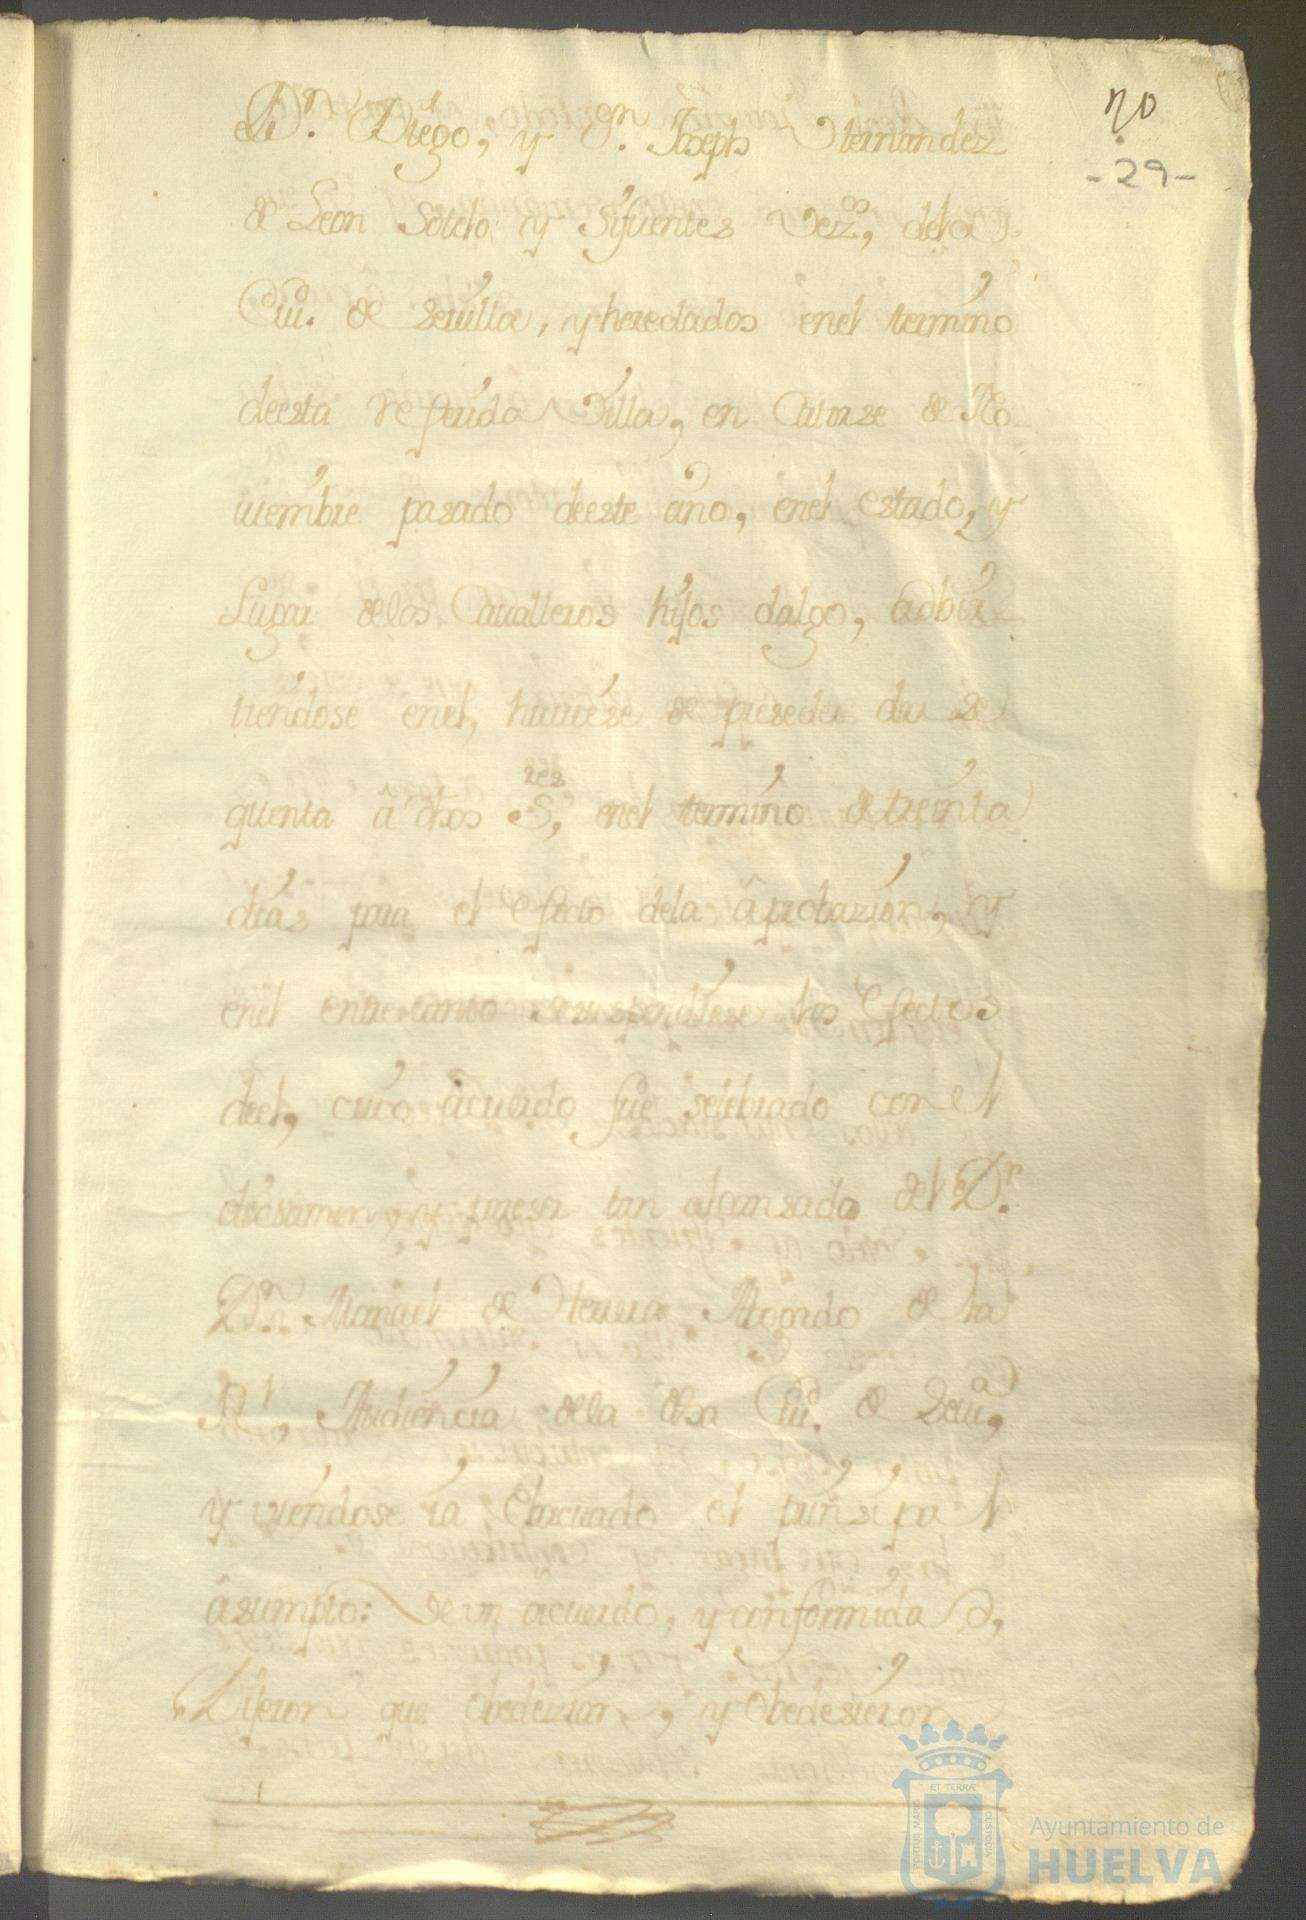 70
-29-
Dn. Diego, y Dn. Joseph Hernandez
de Leon Sotelo y Sifuentes Vezos, dela
Ciud. de Sevilla, y heredados enel termino
deesta referida Villa, en Catorse de No-
viembre pasado deeste año, enel estado, y
Lugar delos Cavalleros hijos dalgo, adbir-
tiendose enel, haverse de preseder dar
quenta â dhos Sres, enel termino de treinta
dias para el efecto dela âprobazion, y
enel entretanto sesuspendiese los Efectos
deel, cuio âcuerdo fue selebrado con el
dictamen, y tan del Dr.
Dn. Manuel de Herrera Abogado de la
Rl. Audiencia dela dha Ciud. de Seva,
y viendose ia Ebacuado el prinsipal
âsumpto: de un âcuerdo, y conformidad,
Dijeron que obedezian, y Obedesieron
PORTUS MARIS ET TERRÆ CUSTODIA
Ayuntamiento de
HUELVA